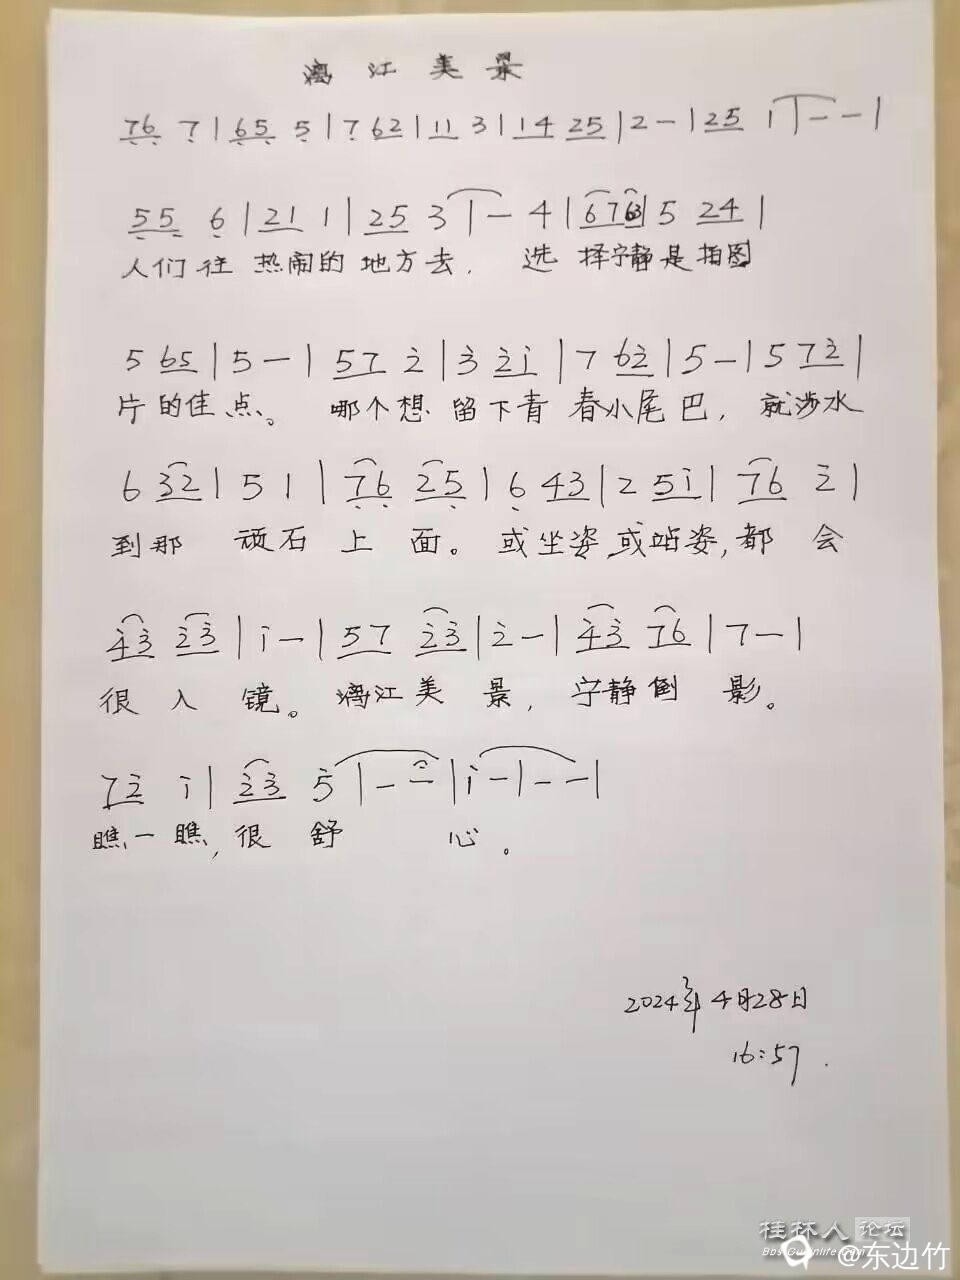 漓江美景
76 7 | 65 5 | 7 62 | 11 3 | 14 25 | 2 - | 25 i | - - |
55 6 | 21 1 | 25 3 | - 4 | 6763 | 5 24 |
人们往 热闹的 地方去, 选 择宁静是拍图
5 65 | 5 - | 57 2̇ | 3̇ 2̇i | 7 62̇ | 5 - | 5 72̇ |
片的佳点。 哪个想 留下青 春小尾巴, 就涉水
6 32 | 5 1 | 76 25 | 6 43 | 2 5i | 76 2̇ |
到那 顽石 上 面。 或坐姿,或站姿,都 会
4̇3̇ 2̇3̇ | i - | 57 2̇3̇ | 2̇ - | 4̇3̇ 76 | 7 - |
很 入 镜。 漓江美 景, 宁静倒 影。
72̇ i | 2̇3̇ 5̇ | - - | i - | - - |
瞧一瞧,很 舒 心。
2024年4月28日
16:57.
桂林人论坛
Bbs.Guilinlife.com
@东边竹